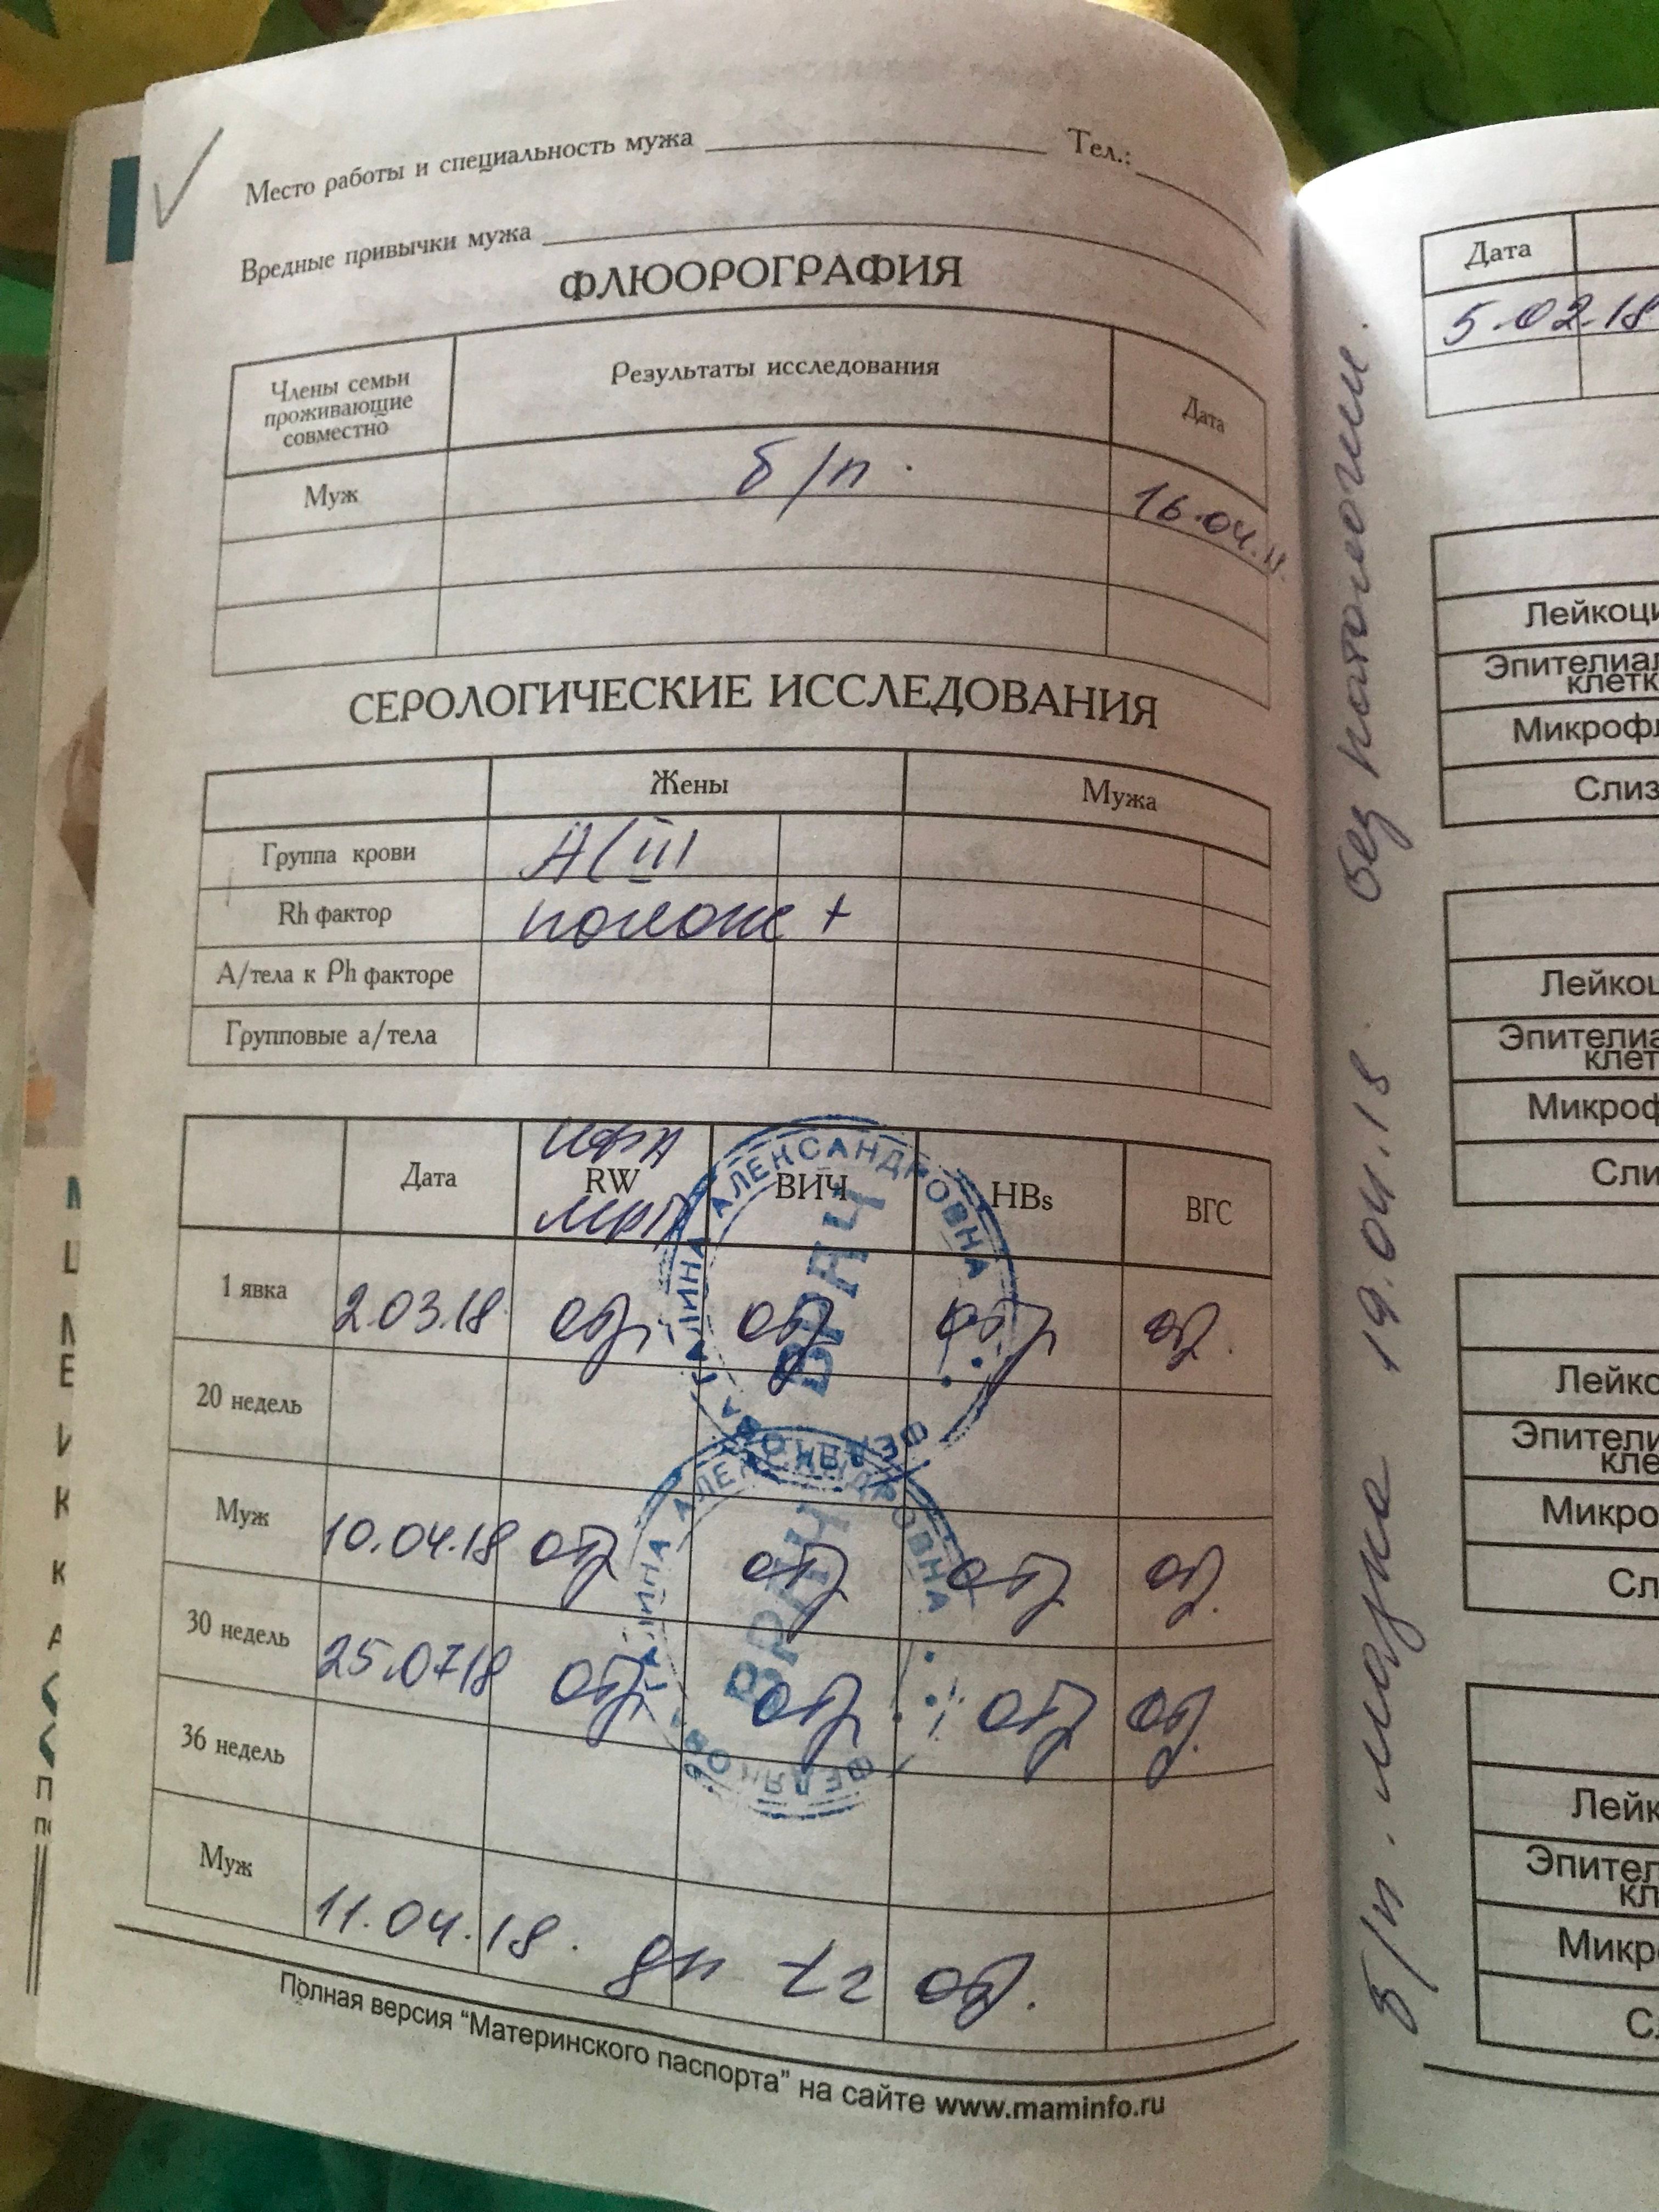 Место работы и специальность мужа Тел.:
Вредные привычки мужа
ФЛЮОРОГРАФИЯ
Члены семьи проживающие совместно Результаты исследования Дата
Муж б/п. 16.04.18
СЕРОЛОГИЧЕСКИЕ ИССЛЕДОВАНИЯ
Жены Мужа
Группа крови A(III
Rh фактор полож +
А/тела к Ph факторе
Групповые а/тела
ИФА
Дата RW ВИЧ HBs ВГС
МРП
1 явка 2.03.18 отр. отр отр отр.
20 недель
Муж 10.04.18 отр отр отр отр.
30 недель 25.07.18 отр отр отр отр.
36 недель
Муж
11.04.18. отр.
ГАЛИНА АЛЕКСАНДРОВНА
ВРАЧ
ГАЛИНА АЛЕКСАНДРОВНА
ВРАЧ
Полная версия “Материнского паспорта” на сайте www.maminfo.ru
б/п. мазка 19.04.18. без патологии.
Дата
5.02.18
Лейкоци
Эпителиал
клетк
Микрофл
Слиз
Лейкоц
Эпителиа
клет
Микроф
Сли
Лейко
Эпители
кле
Микро
Сл
Лейк
Эпител
кл
Микр
С